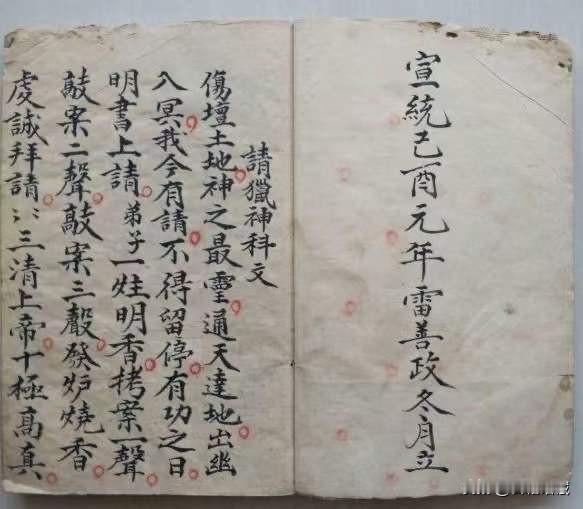 宣統己酉元年雷善政冬月立
請獵神科文
傷壇土地神之最灵通天達地出幽
入冥我今有請不得留停有功之日
明書上請弟子一炷明香拷案一聲
敲案二聲敲案三聲發炉燒香
虔誠拜請〻三清上帝十極高真